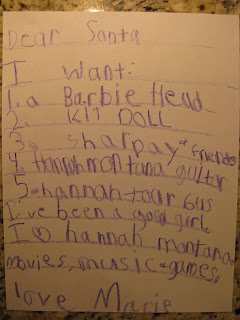 Dear Santa
I want:
1. a Barbie Head
2. KIT DOLL
3. sharpay & friends
4. Hannah montana guitar
5. hannah tour bus
I've been a good girl
I ♡ hannah montana
movies, music & games.
love Marie